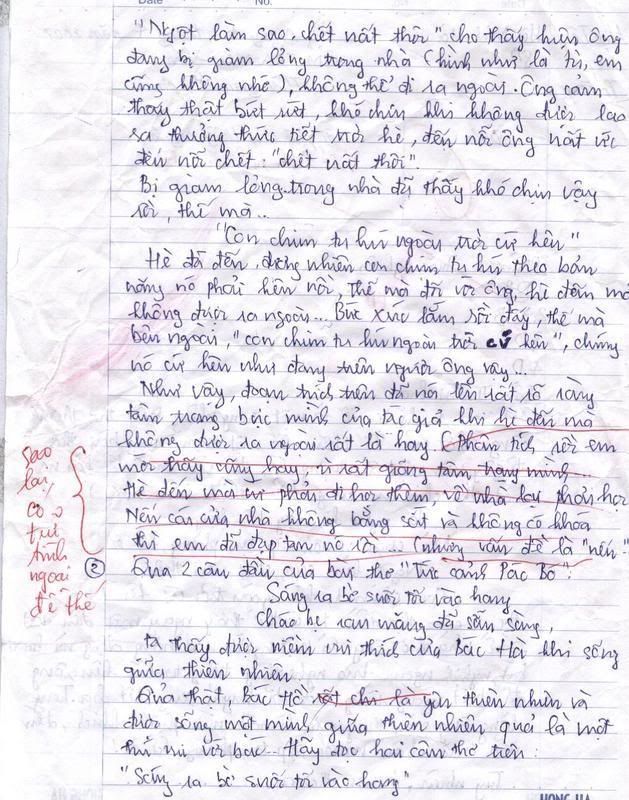 No.
"Ngột làm sao, chết uất thôi" cho thấy hiện ông
đang bị giam lỏng trong nhà (hình như là tù, em
cũng không nhớ), không thể đi ra ngoài. Ông cảm
thấy thật bứt rứt, khó chịu khi không được lao
ra thưởng thức tiết trời hè, đến nỗi ông uất ức
đến nỗi chết: "chết uất thôi".
Bị giam lỏng trong nhà đã thấy khó chịu vậy
rồi, thế mà...
"Con chim tu hú ngoài trời cứ kêu"
Hè đã đến, đương nhiên con chim tu hú theo bản
năng nó phải kêu rồi, thế mà đối với ông, hè đến mà
không được ra ngoài... Bức xúc lắm rồi đấy, thế mà
bên ngoài, "con chim tu hú ngoài trời cứ kêu", chúng
nó cứ kêu như đang trêu người ông vậy...
Như vậy, đoạn trích trên đã nói lên rất rõ ràng
tâm trạng bức mình của tác giả khi hè đến mà
không được ra ngoài rất là hay (Phân tích rồi em
mới thấy cũng hay, vì rất giống tâm trạng mình...
Hè đến mà cứ phải đi học thêm, về nhà lại phải học
Nếu cửa nhà không bằng sắt và không có khóa
thì em đã đạp tan nó rồi... (nhưng vấn đề là "nếu"...
sao
lại
có
tự
tình
ngoài
đề thế
② Qua 2 câu đầu của bài thơ "Tức cảnh Pác Bó":
Sáng ra bờ suối tối vào hang
Cháo bẹ rau măng đã sẵn sàng,
ta thấy được niềm vui thích của Bác Hồ khi sống
giữa thiên nhiên
Quả thật, Bác Hồ rất chi là yêu thiên nhiên và
được sống một mình giữa thiên nhiên quả là một
thú vui với bác... Hãy đọc hai câu thơ trên:
"Sáng ra bờ suối tối vào hang"
HONG HA